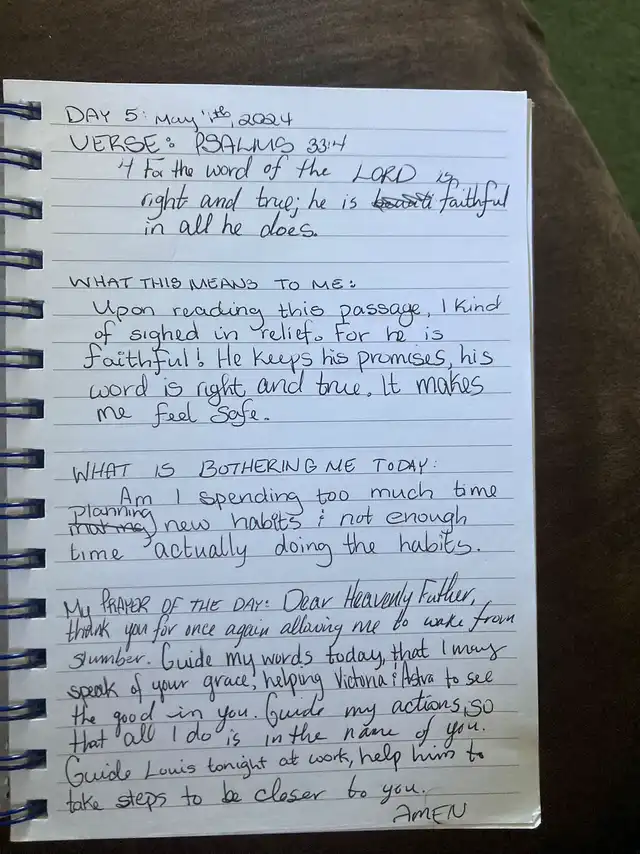 DAY 5: May 11th, 2024
VERSE: PSALMS 33:4
4 For the word of the LORD is
right and true; he is faithful
in all he does.
WHAT THIS MEANS TO ME:
Upon reading this passage, I kind
of sighed in relief. For he is
faithful! He keeps his promises, his
word is right and true. It makes
me feel safe.
WHAT IS BOTHERING ME TODAY:
Am I spending too much time
planning
making new habits & not enough
time actually doing the habits.
My PRAYER OF THE DAY: Dear Heavenly Father,
thank you for once again allowing me to wake from
slumber. Guide my words today, that I may
speak of your grace, helping Victoria & Astra to see
the good in you. Guide my actions, so
that all I do is in the name of you.
Guide Louis tonight at work, help him to
take steps to be closer to you.
AMEN